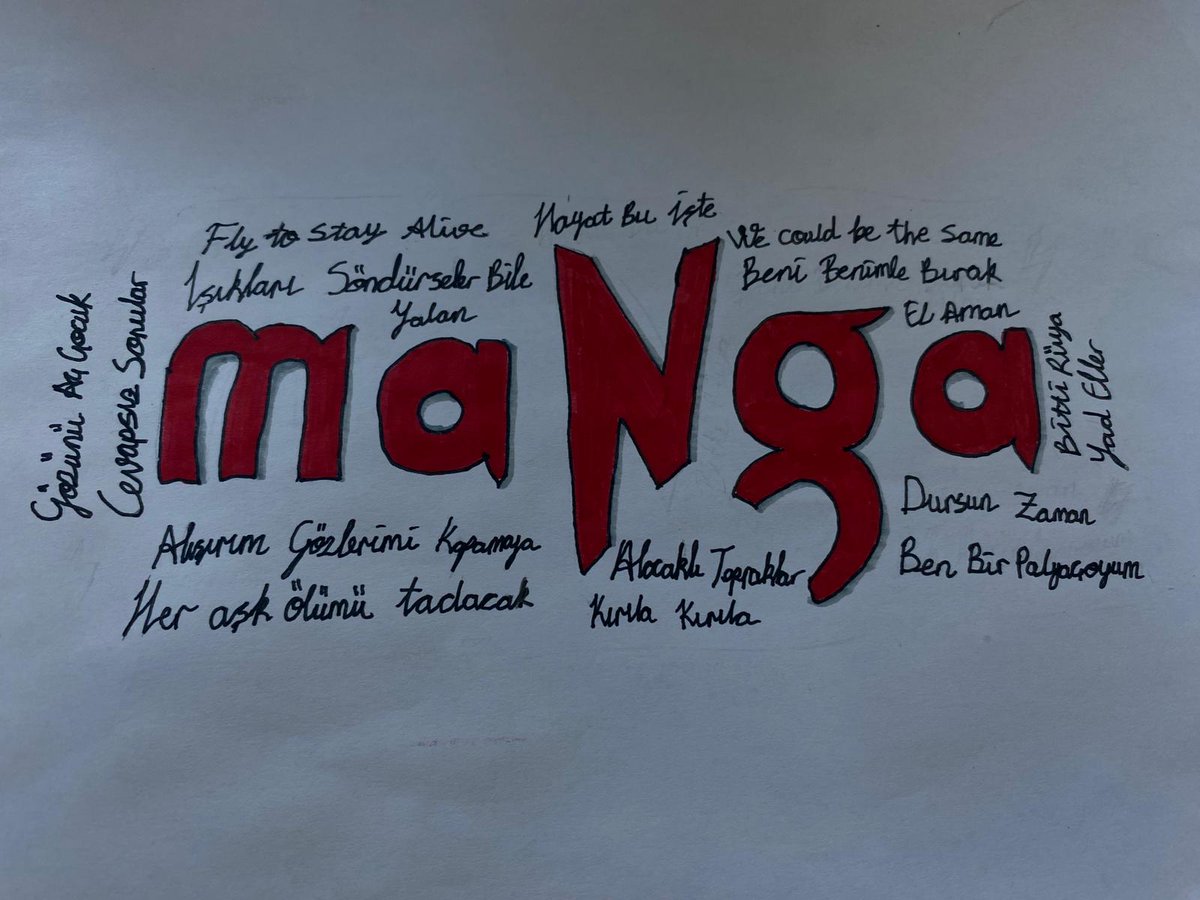 Fly to Stay Alive
Işıkları Söndürseler Bile
Yalan
Hayat Bu İşte
We could be the same
Beni Benimle Bırak
El Aman
Gözünü Aç Çocuk
Cevapsız Sorular
maNga
Bitti Rüya
Yad Eller
Alışırım Gözlerimi Kapamaya
Her aşk Ölümü tadacak
Alacaklı Topraklar
Kırıla Kırıla
Dursun Zaman
Ben Bir Palyaçoyum